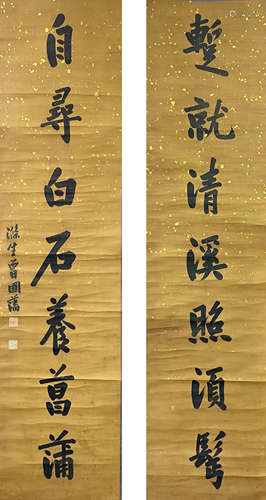 蹔就清溪照須髩
自尋白石養菖蒲
滌生曾國藩